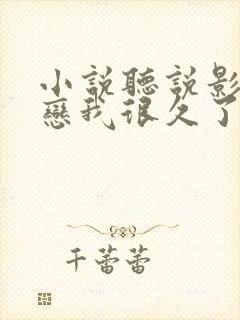 小說聽說影
戀我很久了
千蕾蕾